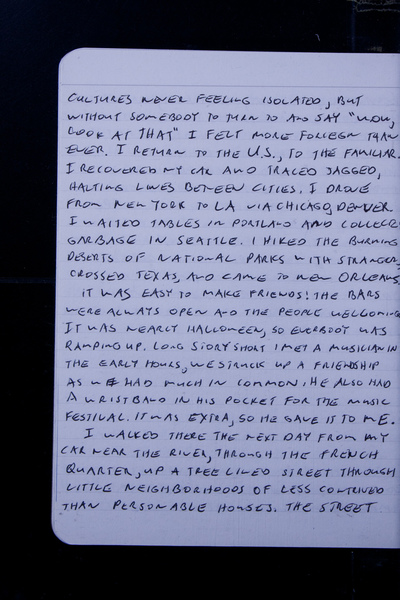 CULTURES NEVER FEELING ISOLATED, BUT
WITHOUT SOMEBODY TO TURN TO AND SAY "WOW,
LOOK AT THAT" I FELT MORE FOREIGN THAN
EVER. I RETURN TO THE U.S., TO THE FAMILIAR.
I RECOVERED MY CAR AND TRACED JAGGED,
HALTING LINES BETWEEN CITIES. I DROVE
FROM NEW YORK TO LA VIA CHICAGO, DENVER.
I WAITED TABLES IN PORTLAND AND COLLECE
GARBAGE IN SEATTLE. I HIKED THE BURNING
DESERTS OF NATIONAL PARKS WITH STRANGERS,
CROSSED TEXAS, AND CAME TO NEW ORLEANS.
IT WAS EASY TO MAKE FRIENDS! THE BARS
WERE ALWAYS OPEN AND THE PEOPLE WELCOMING
IT WAS NEARLY HALLOWEEN, SO EVERBODY WAS
RAMPING UP. LONG STORY SHORT I MET A MUSICIAN IN
THE EARLY HOURS, WE STRUCK UP A FRIENDSHIP
AS WE HAD MUCH IN COMMON. HE ALSO HAD
A WRISTBAND IN HIS POCKET FOR THE MUSIC
FESTIVAL. IT WAS EXTRA, SO HE GAVE IT TO ME.
I WALKED THERE THE NEXT DAY FROM MY
CAR NEAR THE RIVER, THROUGH THE FRENCH
QUARTER, UP A TREE LINED STREET THROUGH
LITTLE NEIGHBORHOODS OF LESS CONTRIVED
THAN PERSONABLE HOUSES. THE STREET